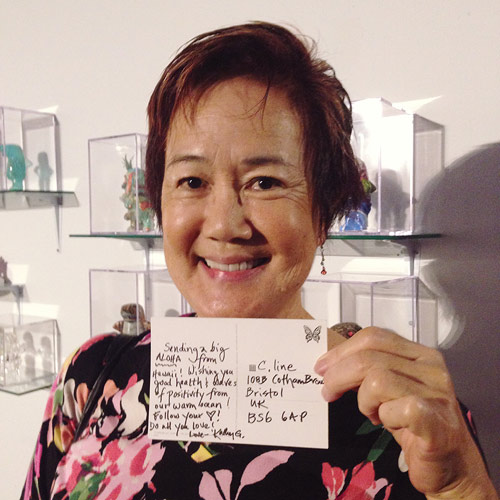 Sending a big
ALOHA from
Hawaii! Wishing you
good health & waves
of positivity from
our warm ocean.
Follow your ♡!
Do all you love!
Love - Kathy G.
C. line
108B Cotham Brow
Bristol
UK
BS6 6AP